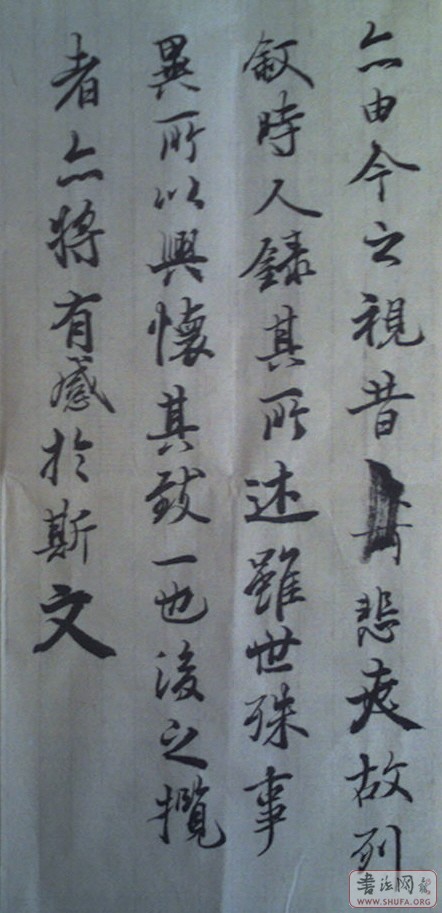 亦由今之視昔悲夫故列
敘時人錄其所述雖世殊事
異所以興懷其致一也後之攬
者亦將有感於斯文
書法网
WWW.SHUFA.ORG